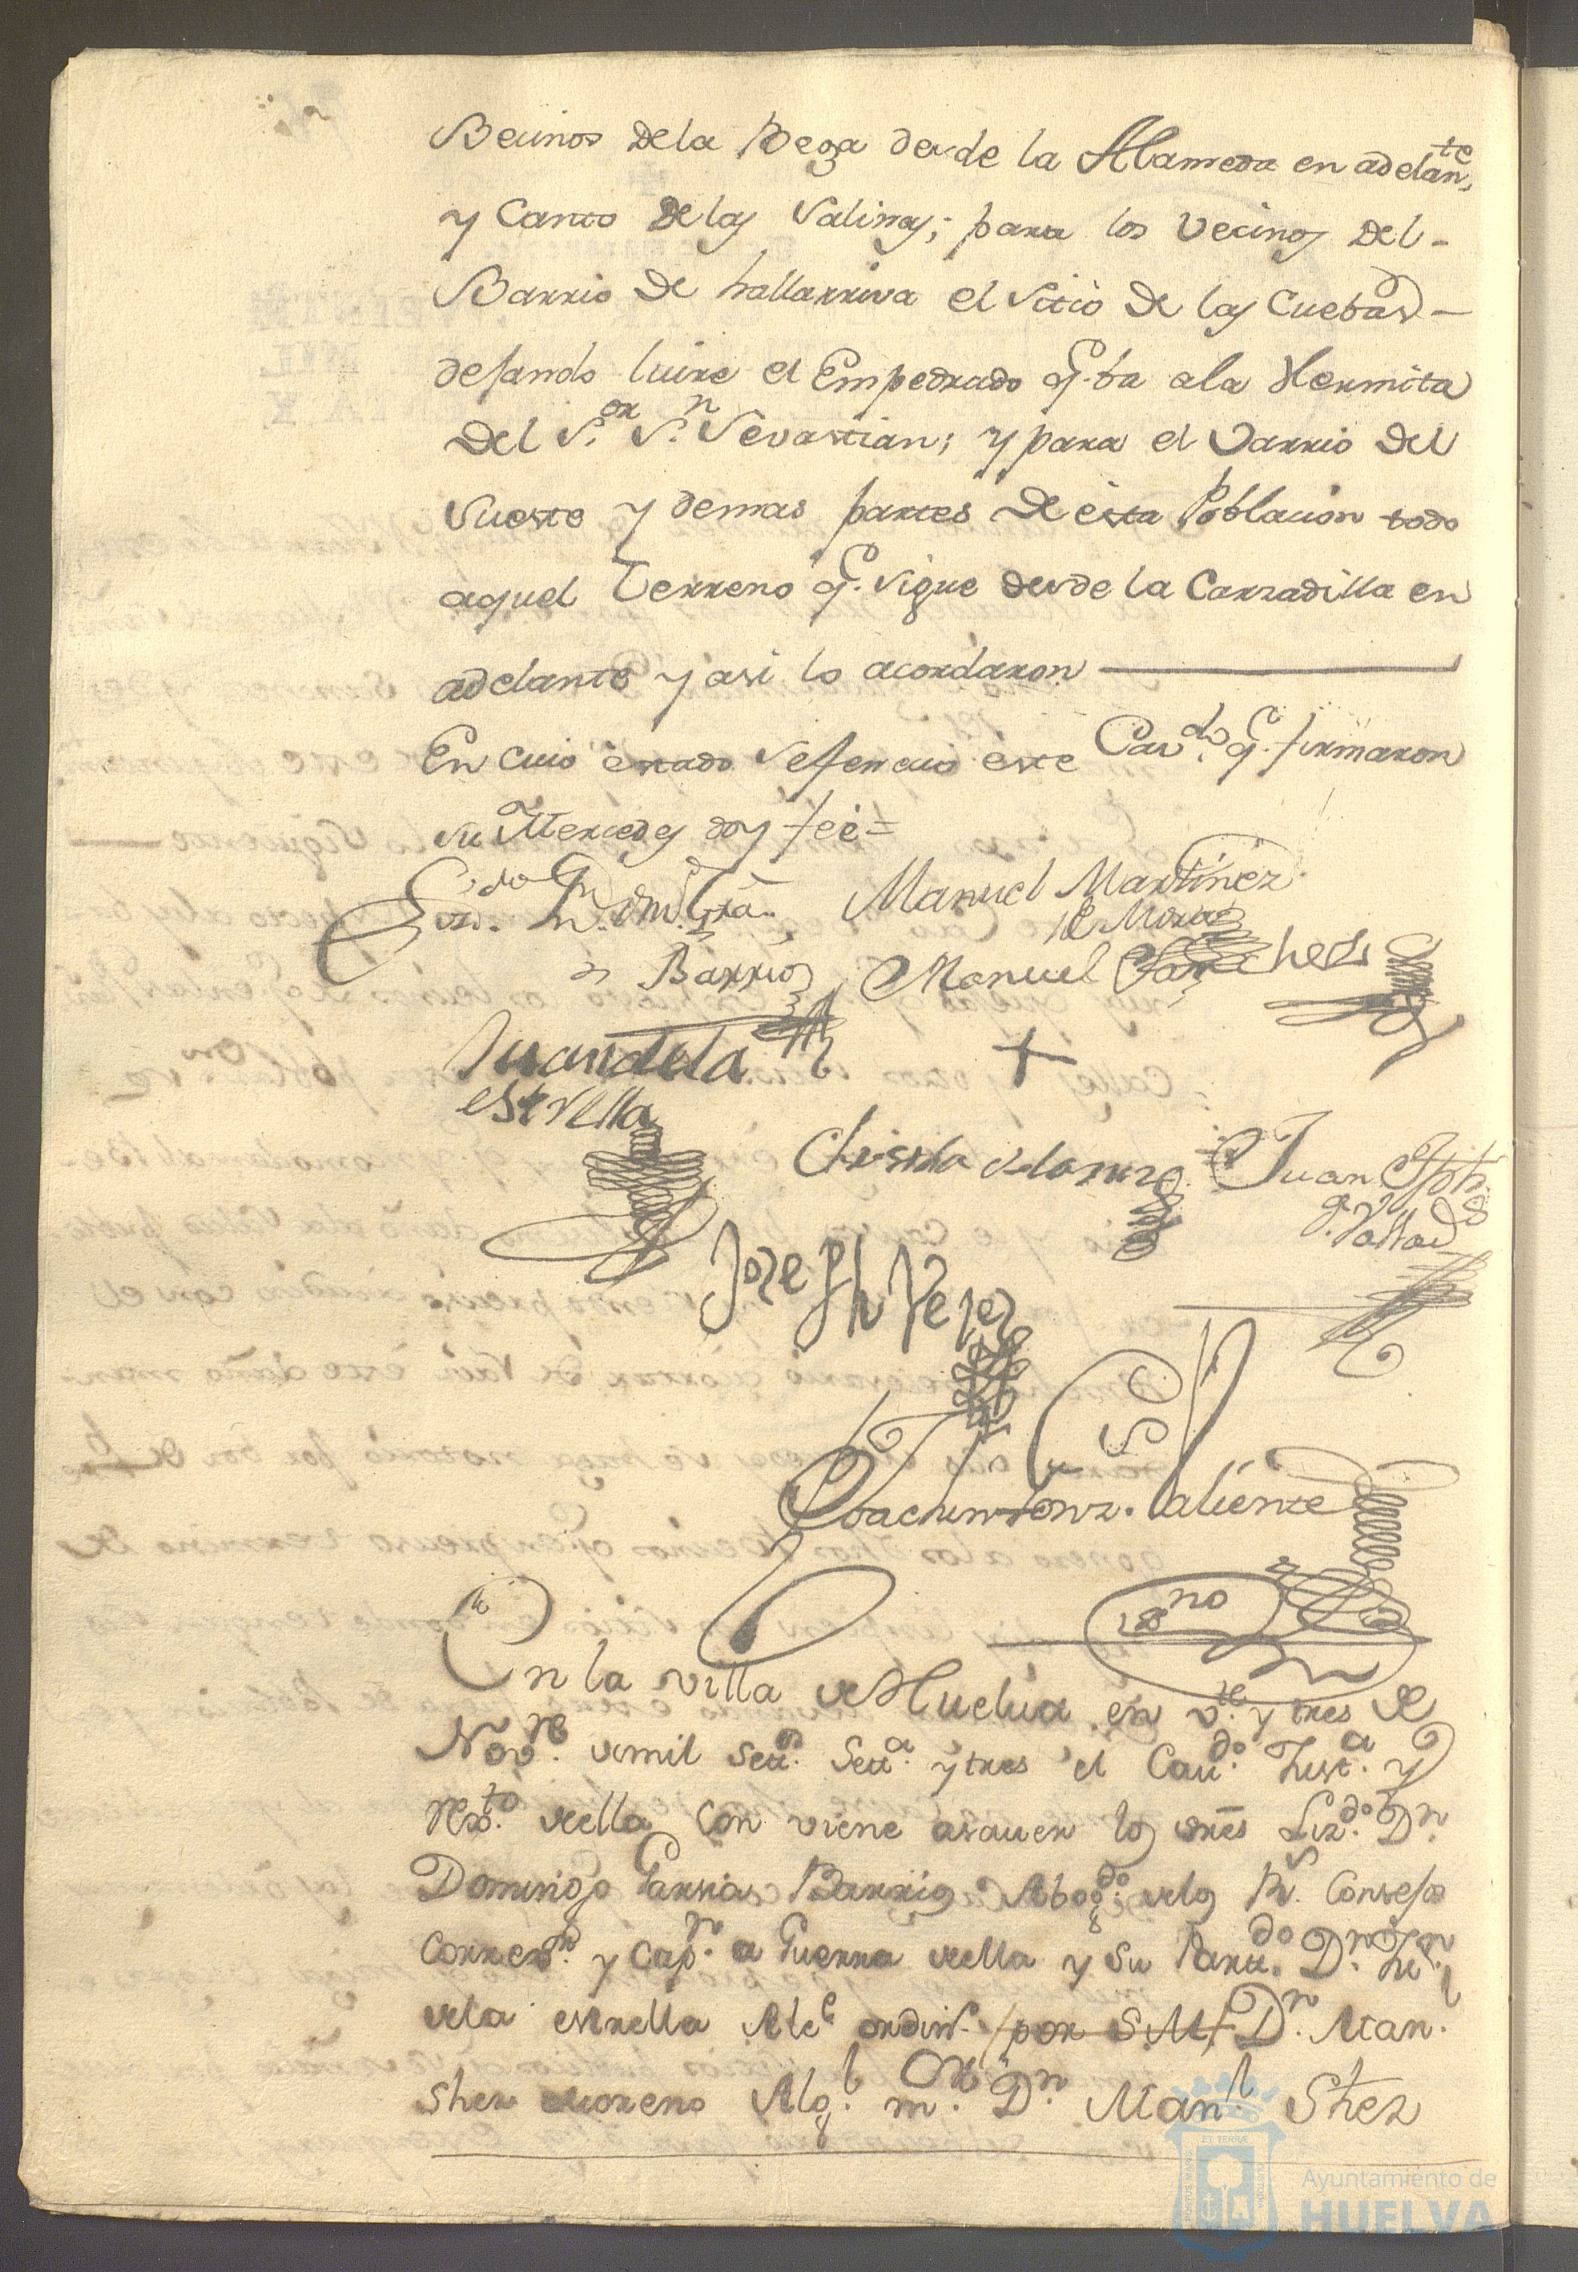 Becinos dela Bega desde la Alameda en adelan.te
y Canto de las Salinas; para los Vecinos del-
Barrio de hallarriva el sitio de las Cuebas-
dejando livre el Empedrado q.e ba ala Hermita
del S.or S.n Sevastian; y para el Varrio del
Sueste y demas partes de esta Poblacion todo
aquel terreno q.e sigue desde la Carzadilla en
adelante y asi lo acordaron
En cuio estado se fenecio este Cav.do q.e firmaron
su Mercedes doy fee=
Liz.do D.n Dm.o Gra.
Manuel Martinez
de Mora
Barrios
Manuel Sanches
Juan de la
estrella
+
Juan Jph.
Joseph Veje
Joachin Gonz. Valiente
ss.no
En la villa de Huelva en v.te y tres de
Nov.re de mil sett.os sett.a y tres el Cav.do Just.a y
Rex.to de ella conviene asaver los sres Liz.do D.n
Domingo Garsia Barrios Abog.do de los R.s Consejos
Correx.r y Cap.n a Guerra de ella y su Part.do D.n Ju.n
de la estrella Alc.e ordin.o /por S.M/ D.n Man.l
Shez Moreno Alg.l m.or D.n Man.l Shez
ET TERRAE
Ayuntamiento de
HUELVA